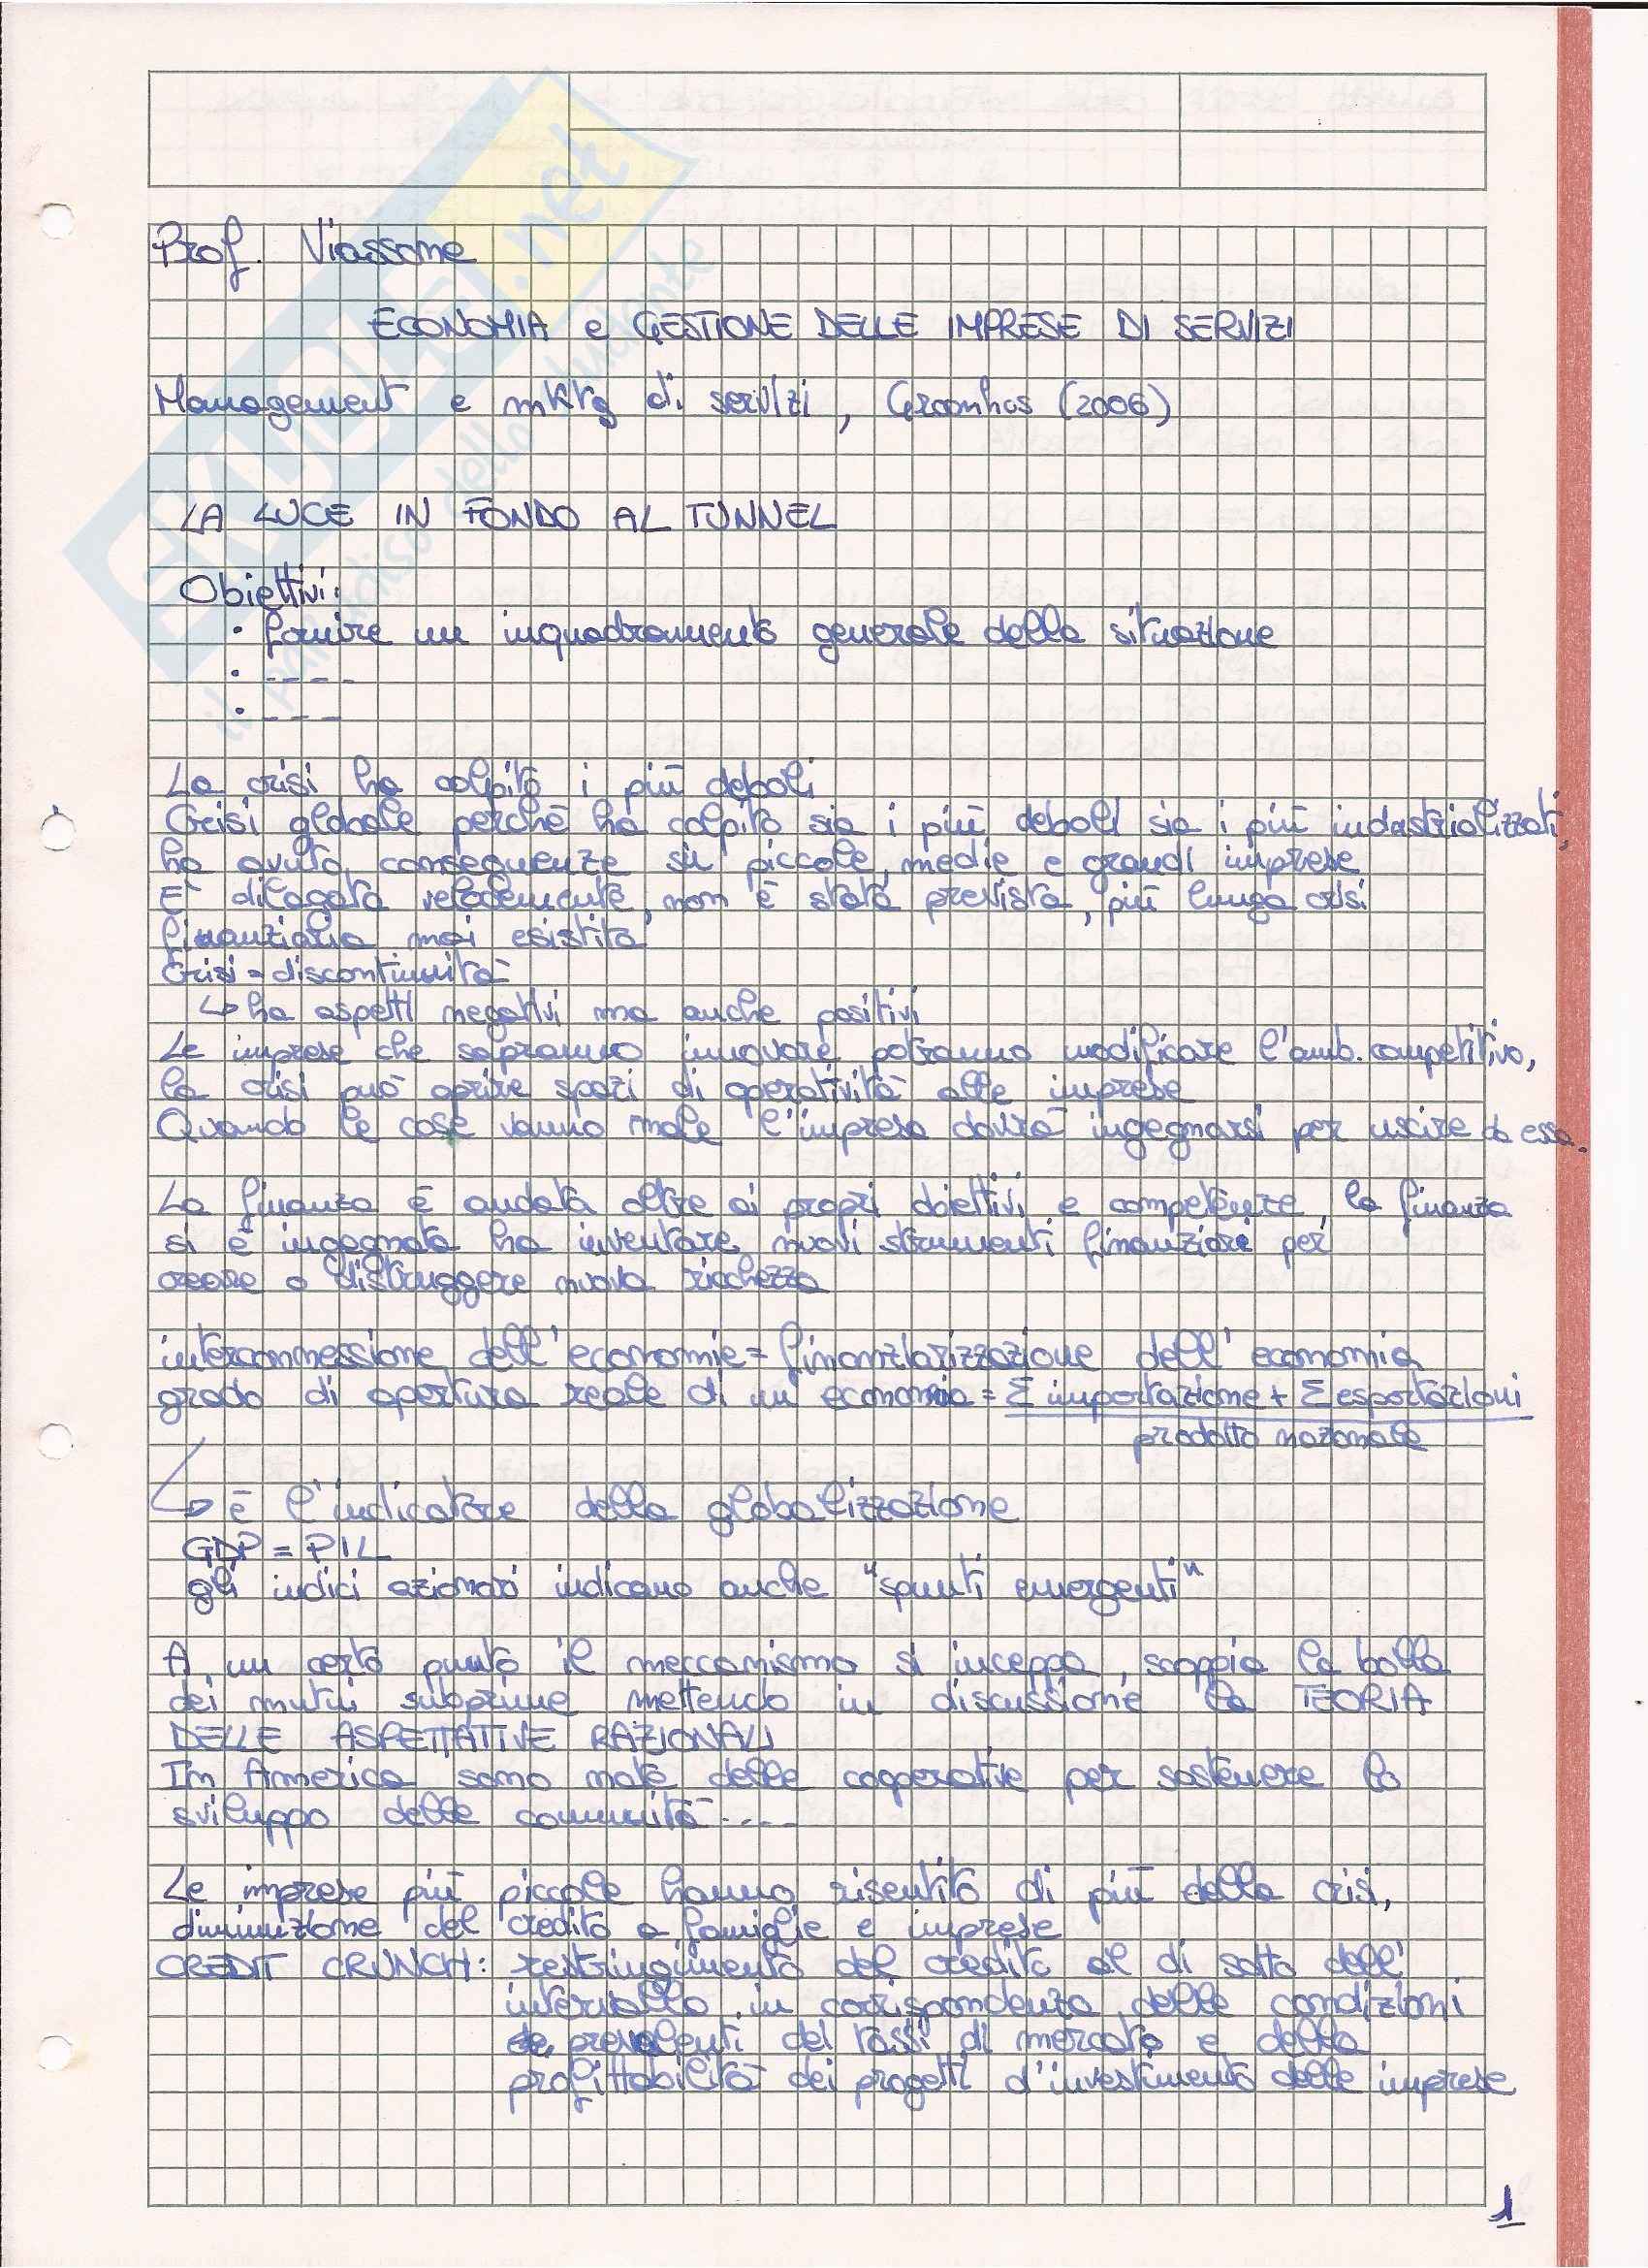 Prof. Viassone
ECONOMIA e GESTIONE DELLE IMPRESE DI SERVIZI
Management e mktg di servizi, Gröonhos (2006)
LA LUCE IN FONDO AL TUNNEL
Obiettivi:
• fornire un inquadramento generale della situazione
• ----
• ---
La crisi ha colpito i più deboli
Crisi globale perchè ha colpito sia i più deboli sia i più industrializzati,
ha avuto conseguenze su piccole, medie e grandi imprese
E' dilagata velocemente, non è stata prevista, più lunga crisi
finanziaria mai esistita
Crisi = discontinuità
↳ ha aspetti negativi ma anche positivi
Le imprese che sapranno innovare potranno modificare l'amb. competitivo,
la crisi può aprire spazi di operatività alle imprese
Quando le cose vanno male l'impresa dovrà ingegnarsi per uscire da essa.
La finanza è andata oltre ai propri obiettivi e competenze, la finanza
si è ingegnata ha inventare nuovi strumenti finanziari per
creare o distruggere nuova ricchezza
interconnessione dell'economie = finanziarizzazione dell'economia
grado di apertura reale di un'economia = Σ importazione + Σ esportazioni
prodotto nazionale
↳ è l'indicatore della globalizzazione
GDP = PIL
gli indici azionari indicano anche "spunti emergenti"
A un certo punto il meccanismo si inceppa, scoppia la bolla
dei mutui subprime mettendo in discussione la TEORIA
DELLE ASPETTATIVE RAZIONALI
In America sono nate delle cooperative per sostenere lo
sviluppo delle comunità ----
Le imprese più piccole hanno risentito di più della crisi,
diminuzione del credito a famiglie e imprese
CREDIT CRUNCH: restringimento del credito al di sotto dell'
intervallo in corrispondenza delle condizioni
prevalenti dei tassi di mercato e della
profittabilità dei progetti d'investimento delle imprese
1
SKUOLA.net
il paradiso dello studente